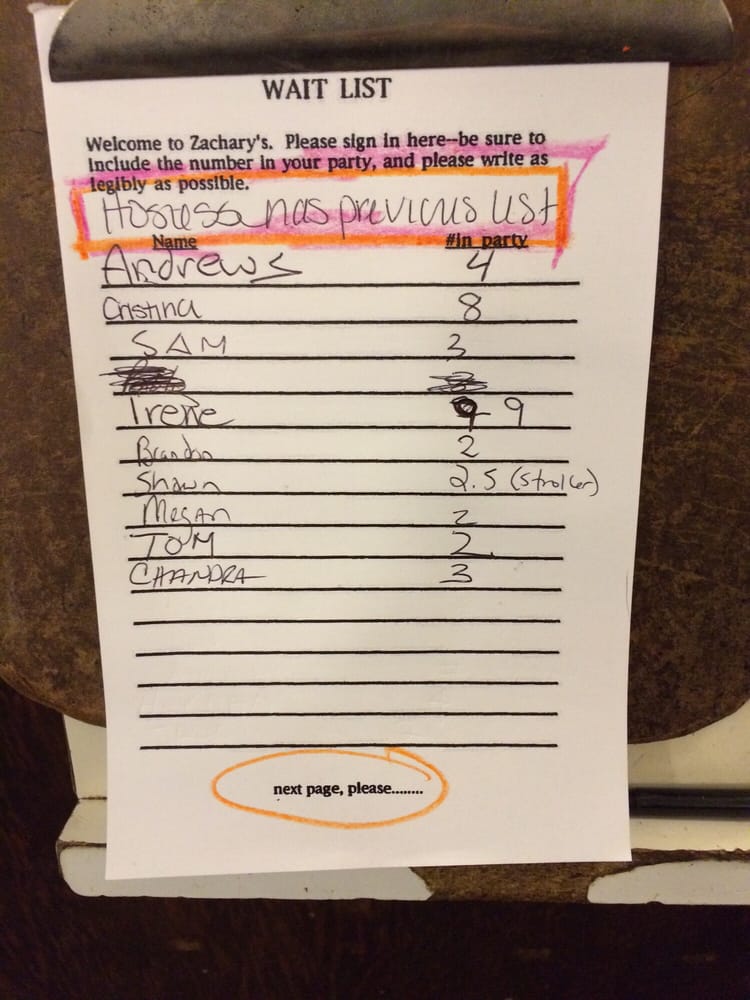 WAIT LIST
Welcome to Zachary's. Please sign in here--be sure to
include the number in your party, and please write as
legibly as possible.
Hostess has previous list
Name #in party
Andrews 4
Cristina 8
SAM 3
Irene 9
Brandon 2
Shawn 2.5 (stroller)
Megan 2
TOM 2
CHANDRA 3
next page, please........